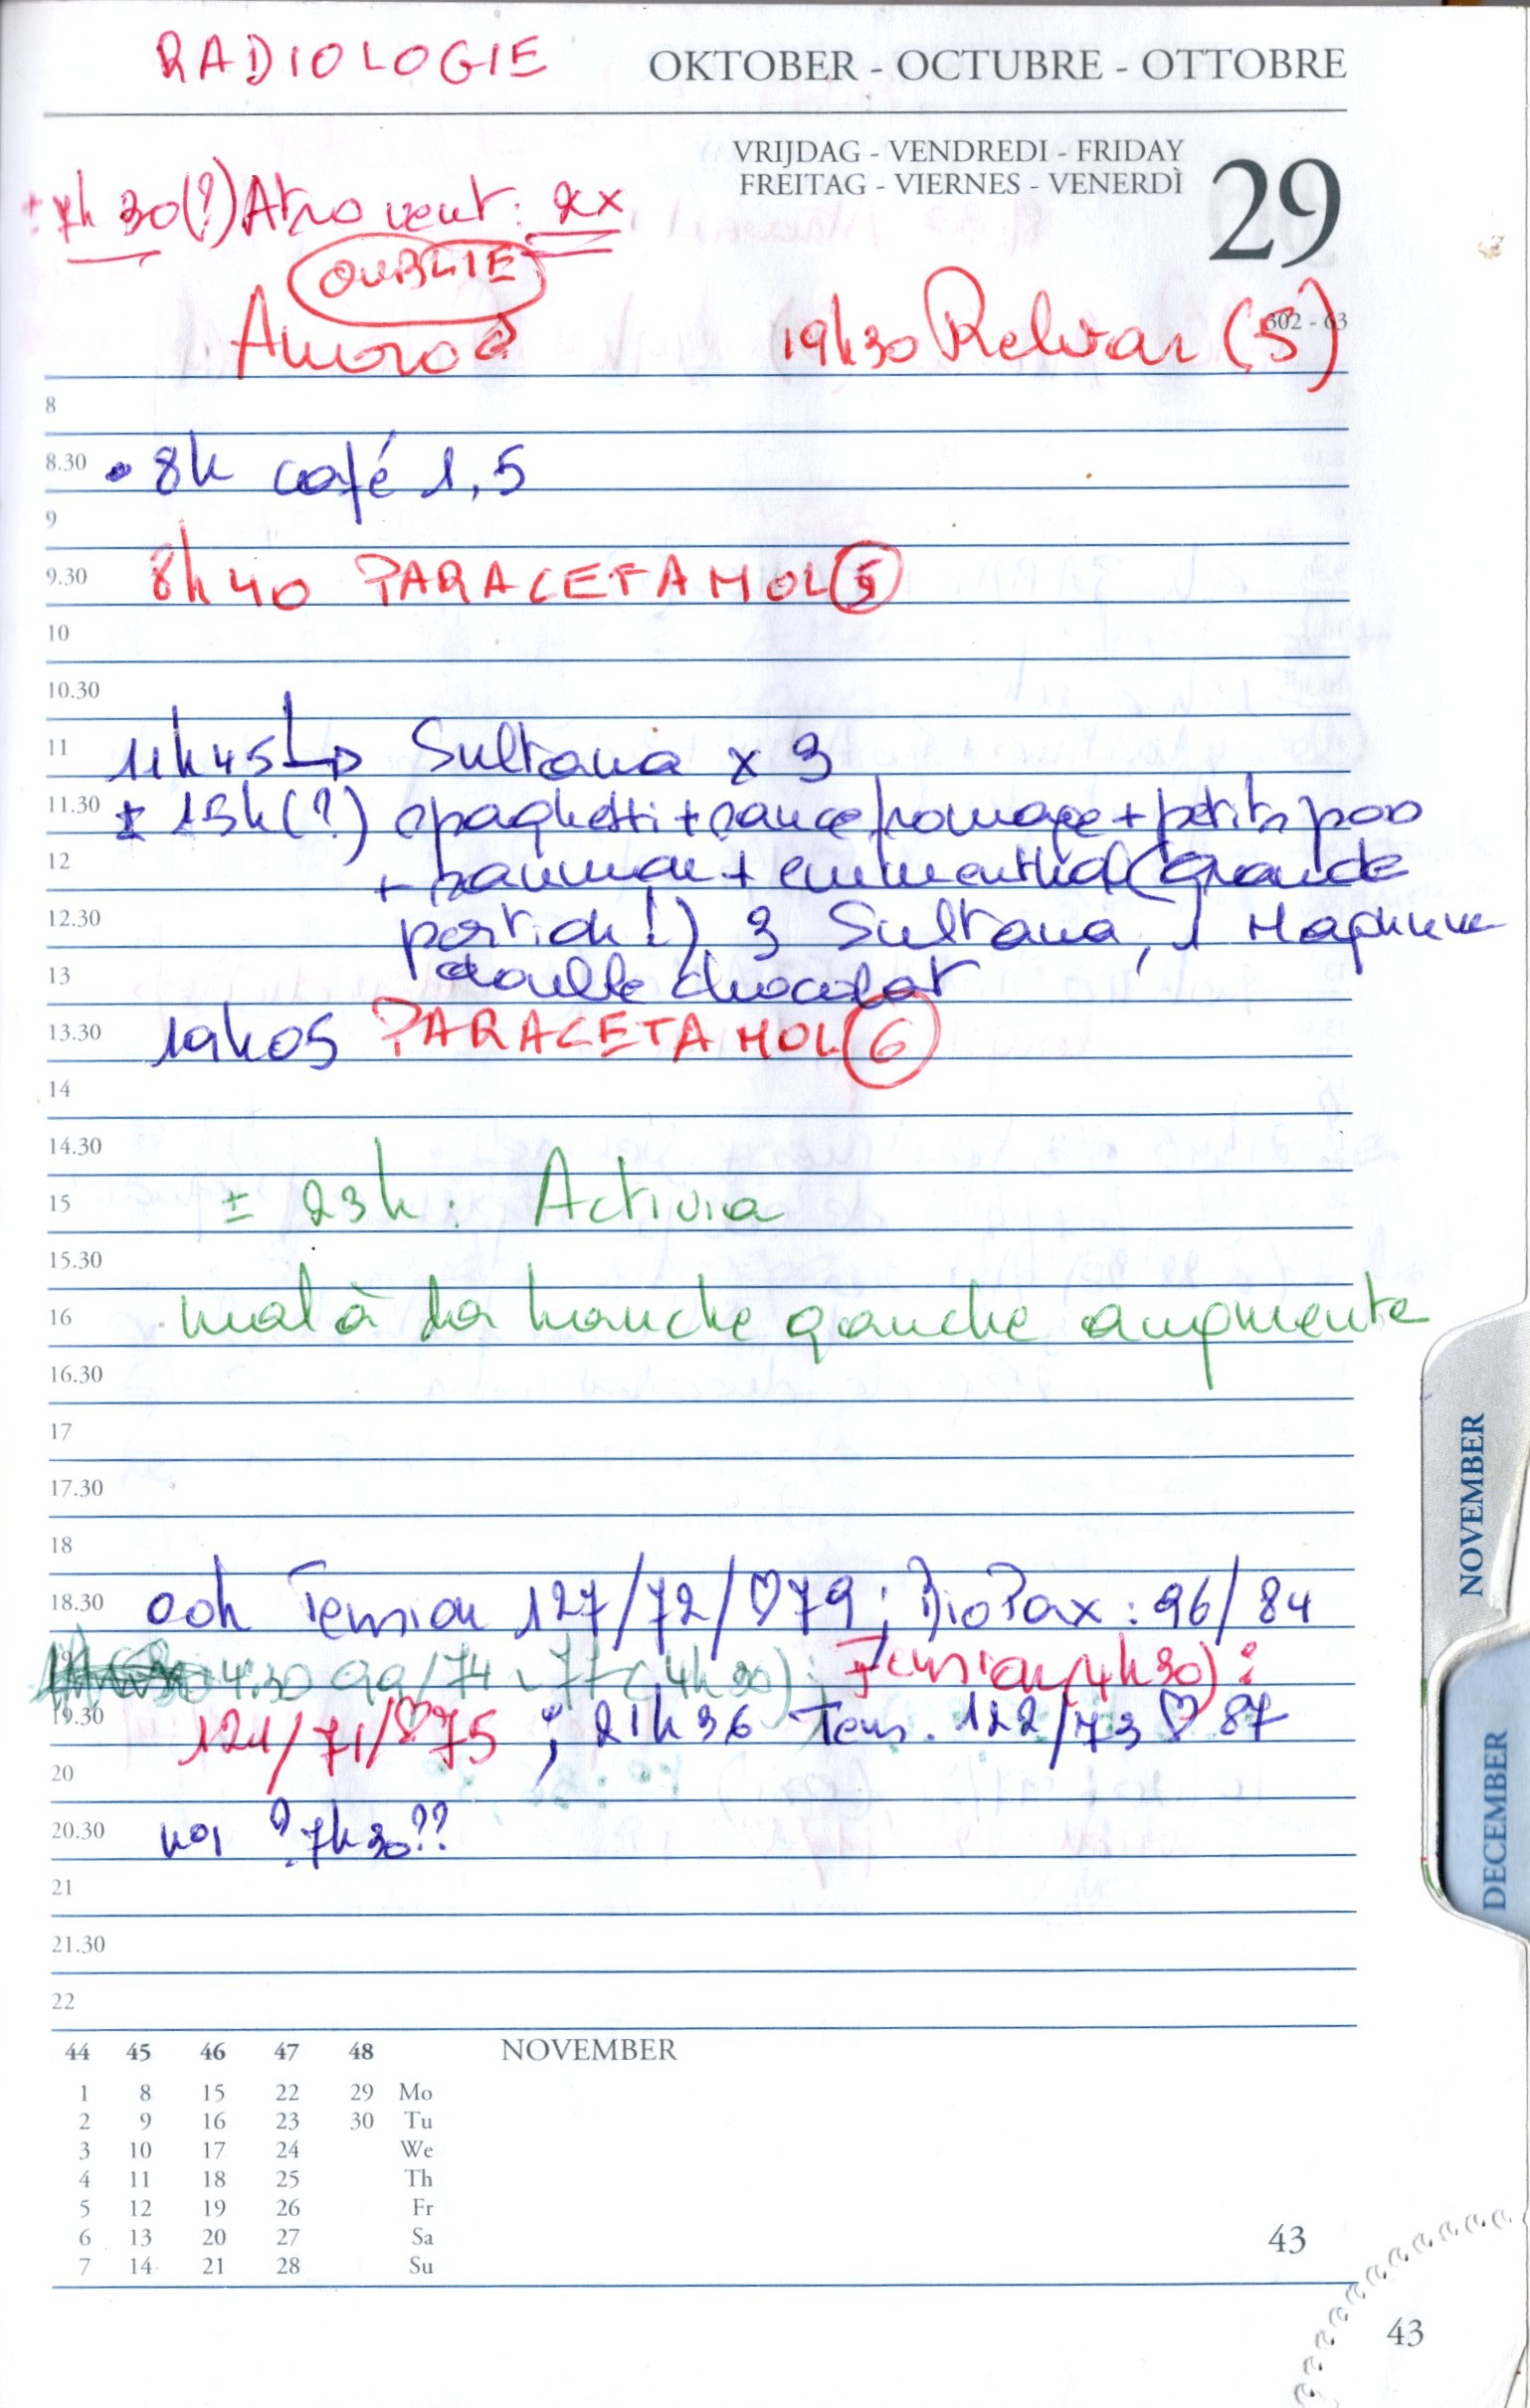 RADIOLOGIE
OKTOBER - OCTUBRE - OTTOBRE
VRIJDAG - VENDREDI - FRIDAY
FREITAG - VIERNES - VENERDÌ
29
302 - 63
± 7h 30(?) Atrovent : 2x
OUBLIE
19h30 Relvar (5)
8
8.30 • 8h café 1,5
9
9.30 8h40 PARACETAMOL 5
10
10.30
11 11h45 Sultana x 3
11.30 ± 13h(?) spaghetti + sauce fromage + petits pois
12 + saumon + emmenthal (grande
12.30 portion !) 3 Sultana, 1
13 double chocolat
13.30 19h05 PARACETAMOL 6
14
14.30
15 ± 23h : Activia
15.30
16 mal à la hanche gauche augmente
16.30
17
17.30
18
18.30 00h Tension 127/72/♡79 ; : 96/84
4.30 99/74 77 (4h30) ; Tension (4h30) :
19.30 121/71/♡75 ; 21h36 Tens. 122/73 ♡ 87
20
20.30 ? 7h30??
21
21.30
22
44 45 46 47 48 NOVEMBER
1 8 15 22 29 Mo
2 9 16 23 30 Tu
3 10 17 24 We
4 11 18 25 Th
5 12 19 26 Fr
6 13 20 27 Sa
7 14 21 28 Su
43
43
NOVEMBER
DECEMBER